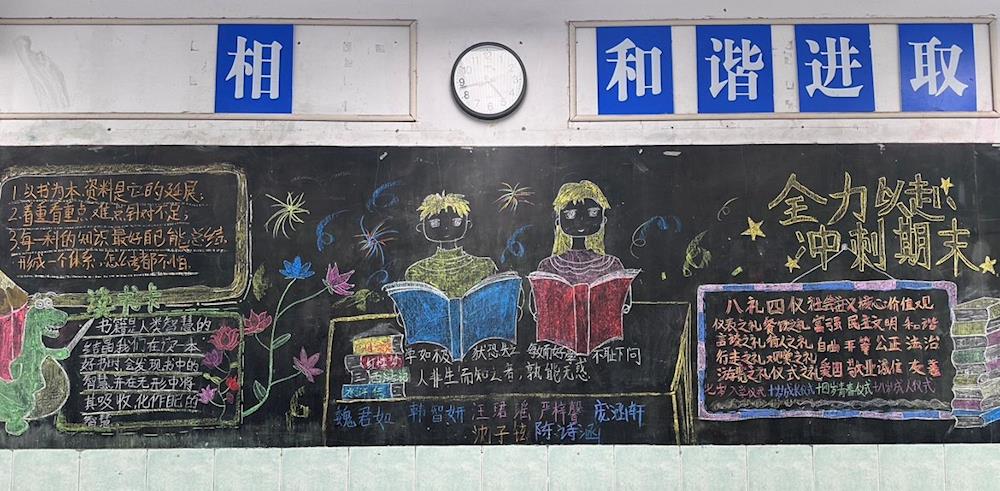 相
和谐进取
1.以书为本,资料是它的延展;
2.着重看重点,难点针对不足;
3.每一科的知识最好自己能总结
形成一个体系,怎么考都不怕
读书卡
书籍是人类智慧的
结晶我们在读一本
好书时,会发现书中的
智慧,并在无形中将
其吸收,化作自己的
智慧
学如不及 犹恐失之 敏而好学 不耻下问
人非生而知之者,孰能无惑
魏君如 韩智妍 汪珺瑶 庞涵轩
陈诗涵
全力以赴
冲刺期末
八礼四仪 社会主义核心价值观
仪表之礼 餐饮之礼 富强 民主 文明 和谐
言谈之礼 待人之礼 自由 平等 公正 法治
行走之礼 观赏之礼
游览之礼 仪式之礼 爱国 敬业 诚信 友善
七岁入学仪式 十岁成长仪式 十四岁青春仪式 十八岁成人仪式